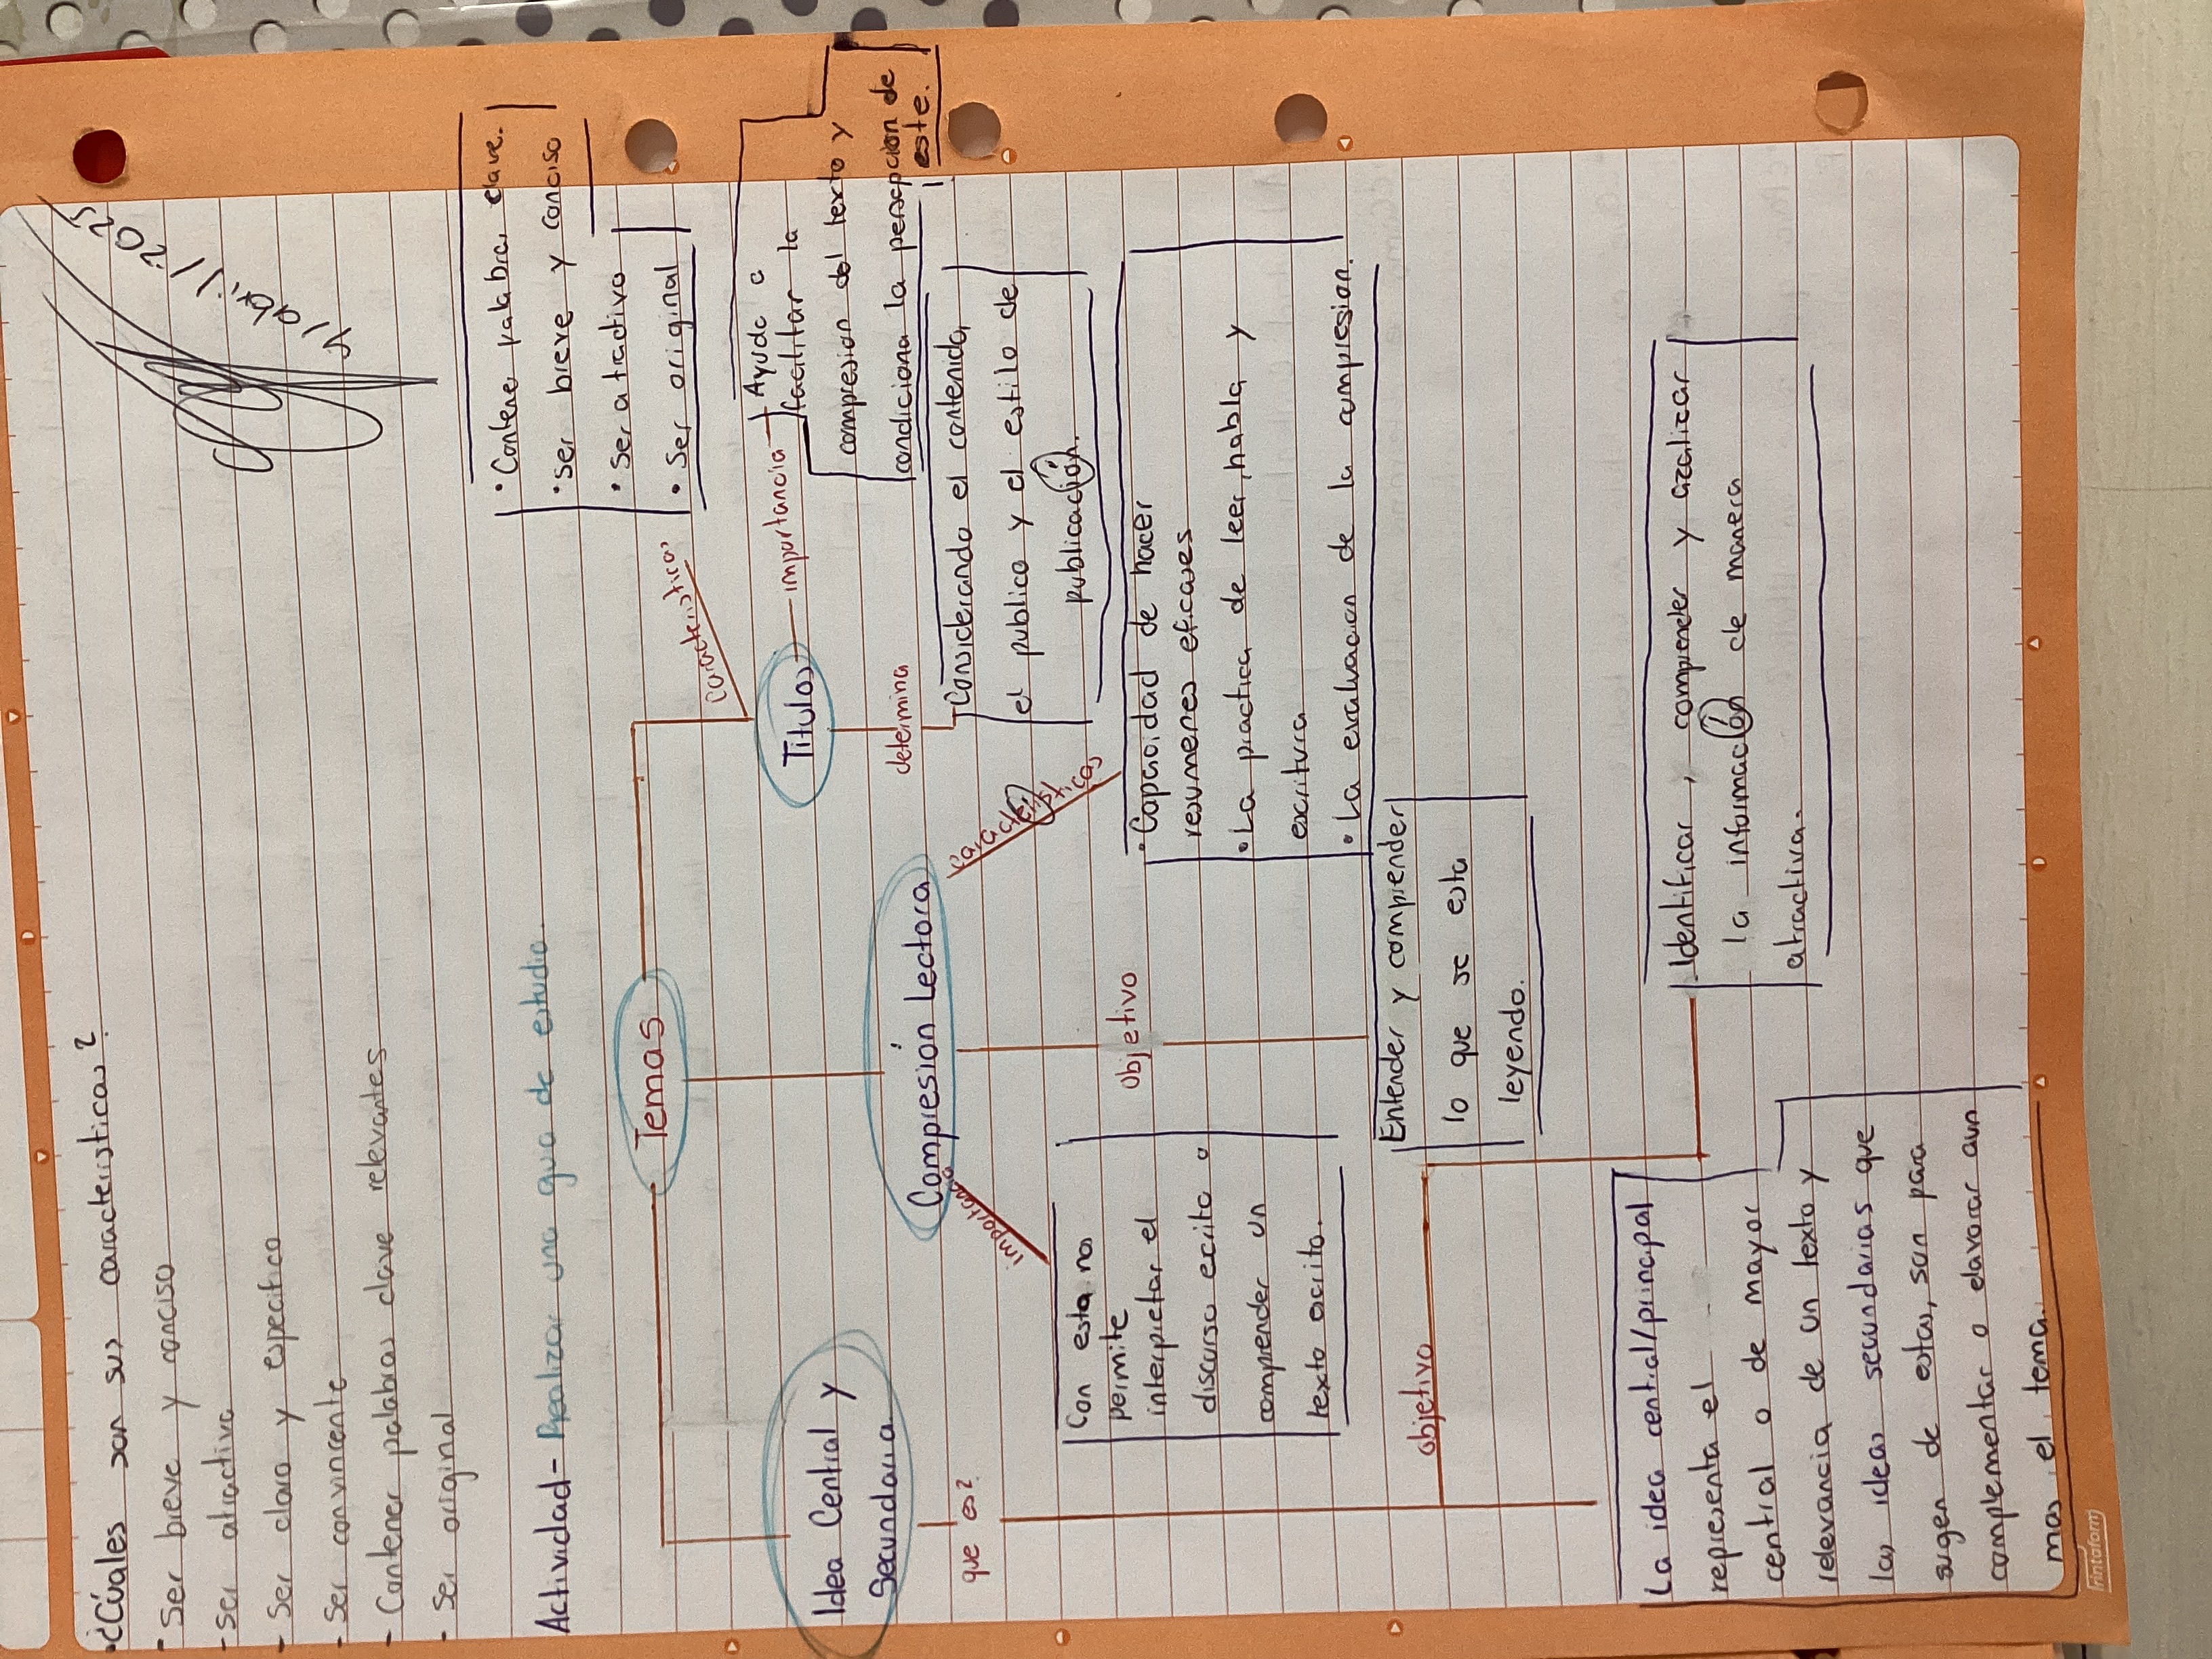 ¿Cuales son sus caracteristicas?
Ser breve y conciso
- ser atractivo
- Ser claro y especifico
- Ser convincente
- Contener palabras clave relevantes
- Ser original
Actividad- Realizar una guia de estudio.
Temas
caracteristicas
• Contene palabra, clave.
• ser breve y conciso
• Ser atractivo
• Ser original
Titulos
importancia
Ayuda a
facilitar la
compresion del texto y
condiciona la persepcion de
este.
determina
Considerando el contenido,
el publico y el estilo de
publicación.
Compresión Lectora
caracteristicas
• Capacidad de hacer
resumenes eficases
• La practica de leer, habla y
escritura
• La evaluacion de la compresion.
objetivo
Entender y comprender
lo que se esta
leyendo.
importancia
Con esta nos
permite
interpretar el
discurso ecrito o
comprender un
texto ecrito.
Idea Central y
Secundaria
que es?
La idea central/principal
representa el
central o de mayor
relevancia de un texto y
las ideas secundarias que
surgen de estas, son para
complementar o elavorar aun
mas el tema.
objetivo
Identificar, comprender y azalizar
la información de manera
atractiva.
Printaform